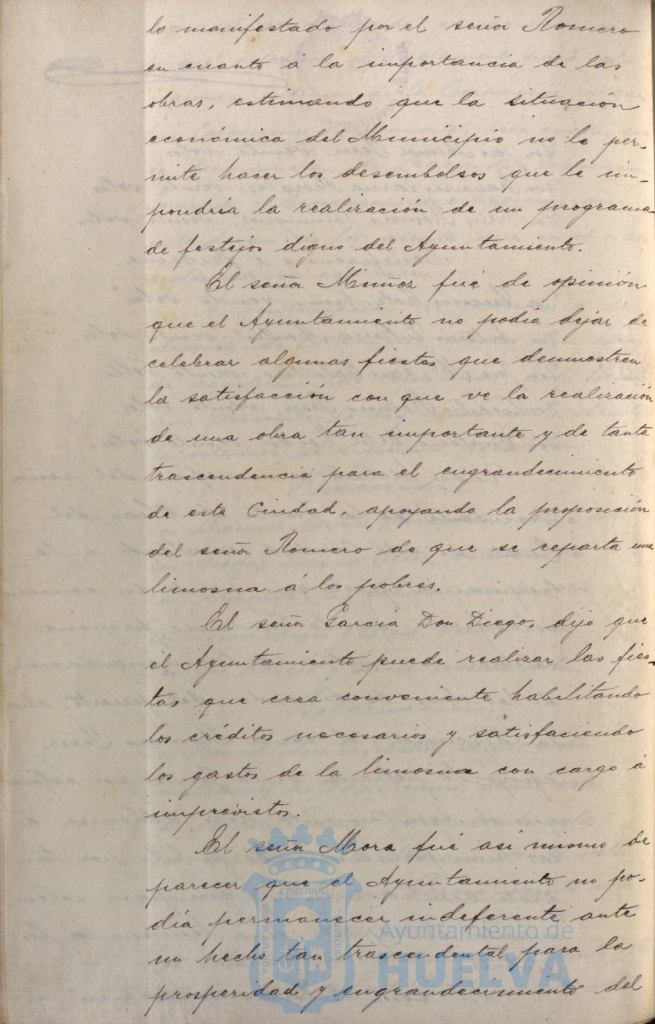 lo manifestado por el señor Romero
en cuanto á la importancia de las
obras, estimando que la situación
económica del Municipio no le per-
mite hacer los desembolsos que le im-
pondría la realización de un programa
de festejos digno del Ayuntamiento.
El señor Muñoz fué de opinión
que el Ayuntamiento no podía dejar de
celebrar algunas fiestas que demuestren
la satisfacción con que ve la realización
de una obra tan importante y de tanta
trascendencia para el engrandecimiento
de esta Ciudad, apoyando la proposición
del señor Romero de que se reparta una
limosna á los pobres.
El señor García Don Diego, dijo que
el Ayuntamiento puede realizar las fies-
tas que crea conveniente habilitando
los créditos necesarios y satisfaciendo
los gastos de la limosna con cargo á
imprevistos.
El señor Mora fué así mismo de
parecer que el Ayuntamiento no po-
día permanecer indeferente ante
un hecho tan trascendental para la
prosperidad y engrandecimiento del
Ayuntamiento de
HUELVA